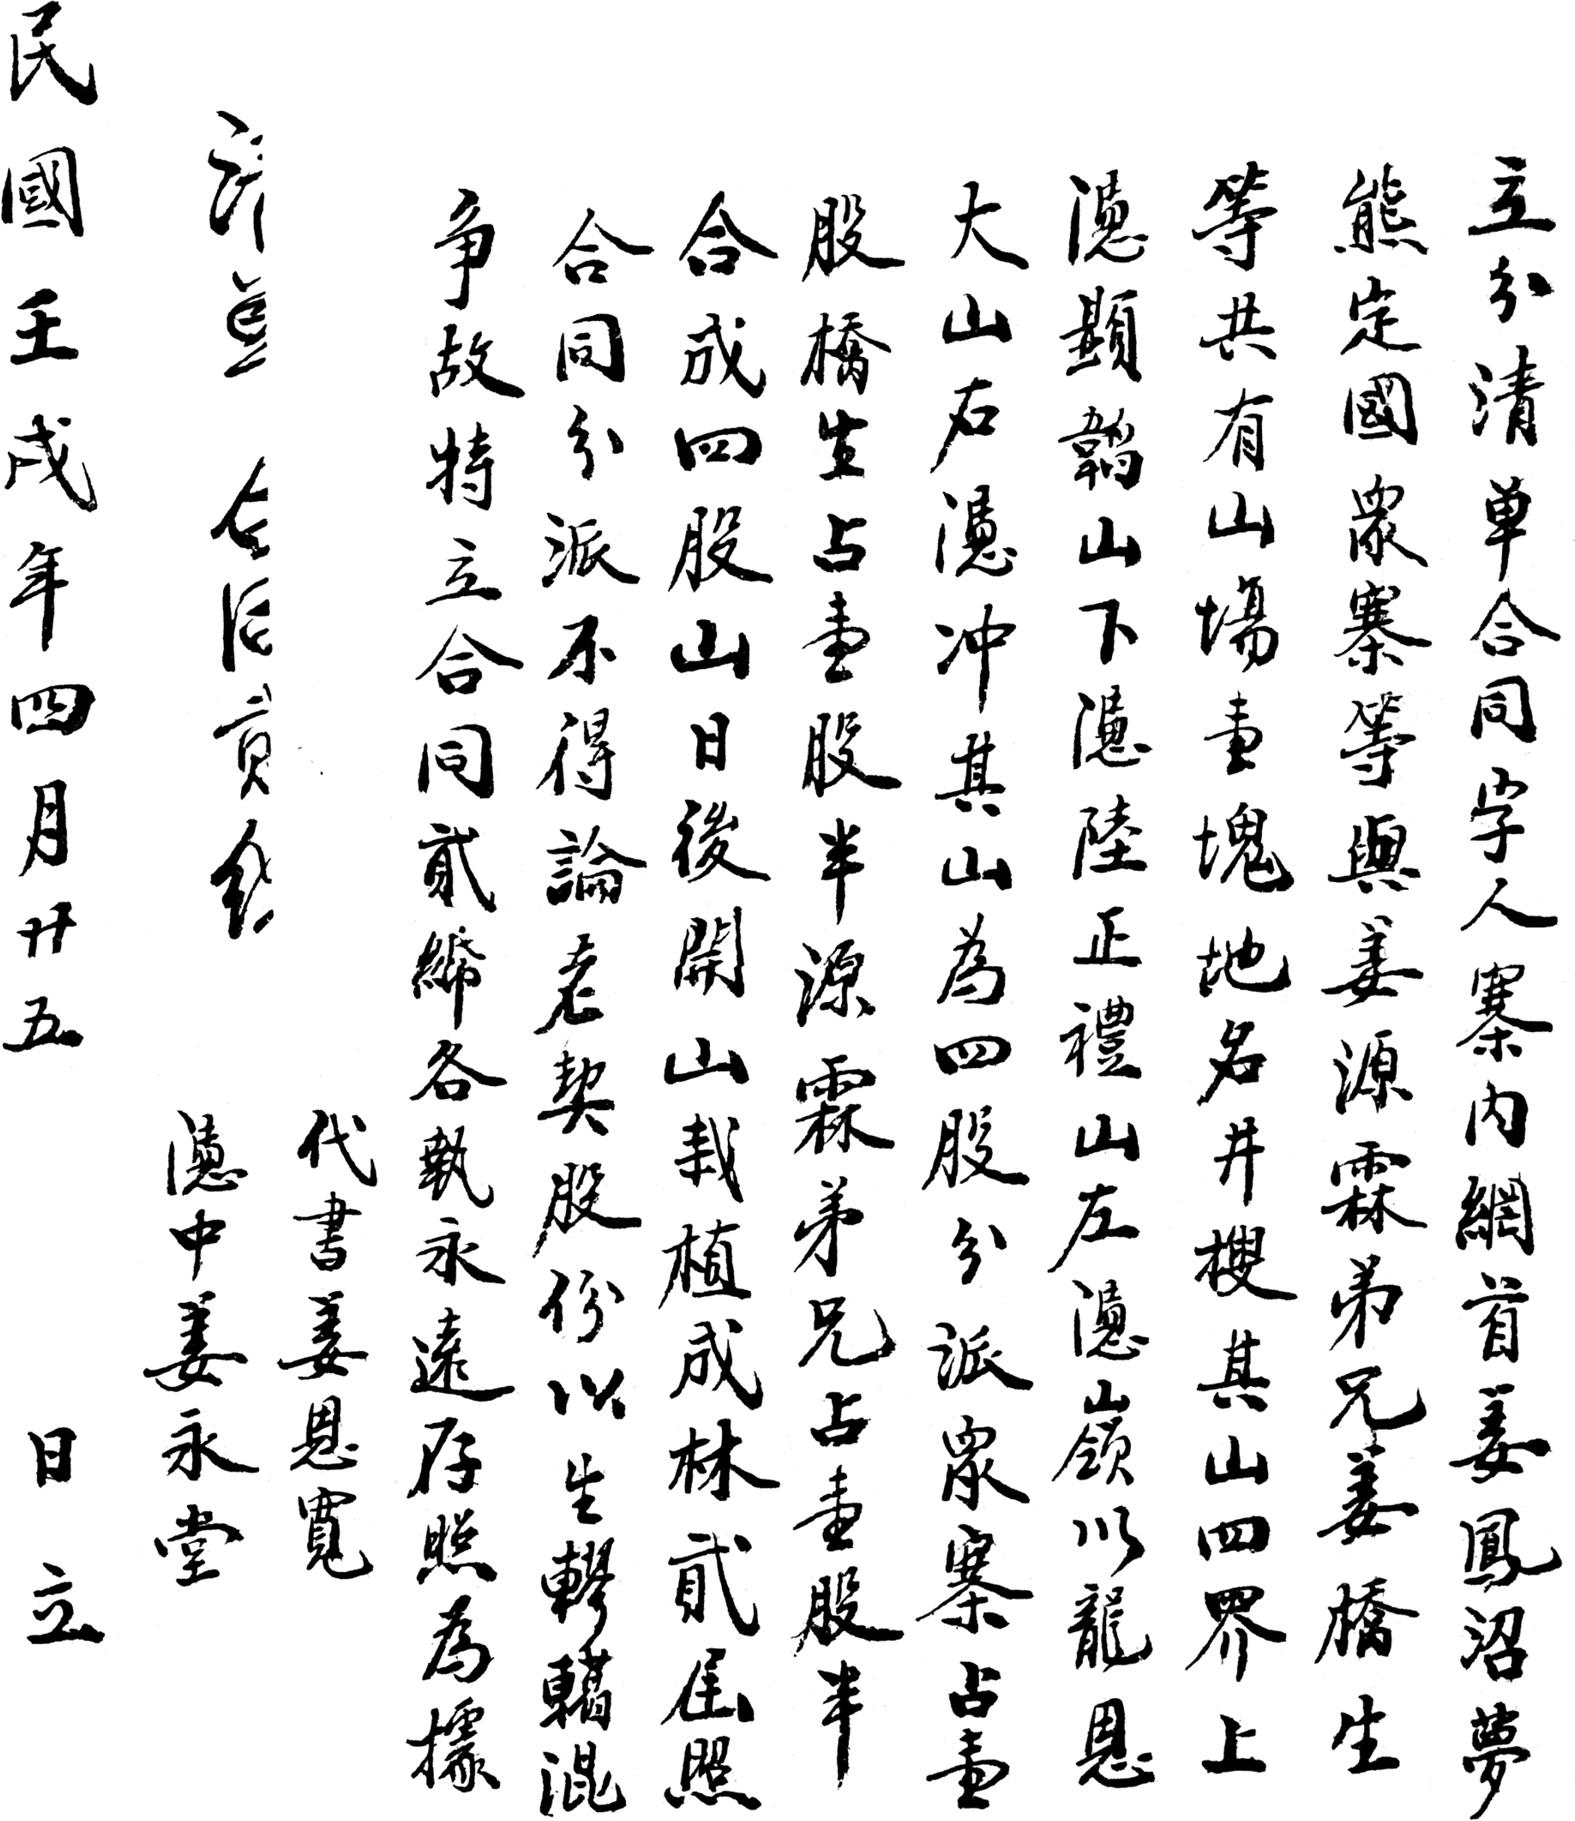 立分清单合同字人寨內網首姜鳳沼夢
熊定國眾寨等與姜源霖弟兄姜橋生
等共有山塲壹塊地名井樓其山四界上
憑顯韜山下憑陸正禮山左憑嶺以龍恩
大山右憑冲其山為四股分派眾寨占壹
股橋生占壹股半源霖弟兄占壹股半
合成四股山日後開山栽植成林貳屋照
合同分派不得論老契股份以生轇轕混
争故特立合同貳紙各執永遠存照為據
代書姜恩寬
憑中姜永堂
民國壬戌年四月廿五日立